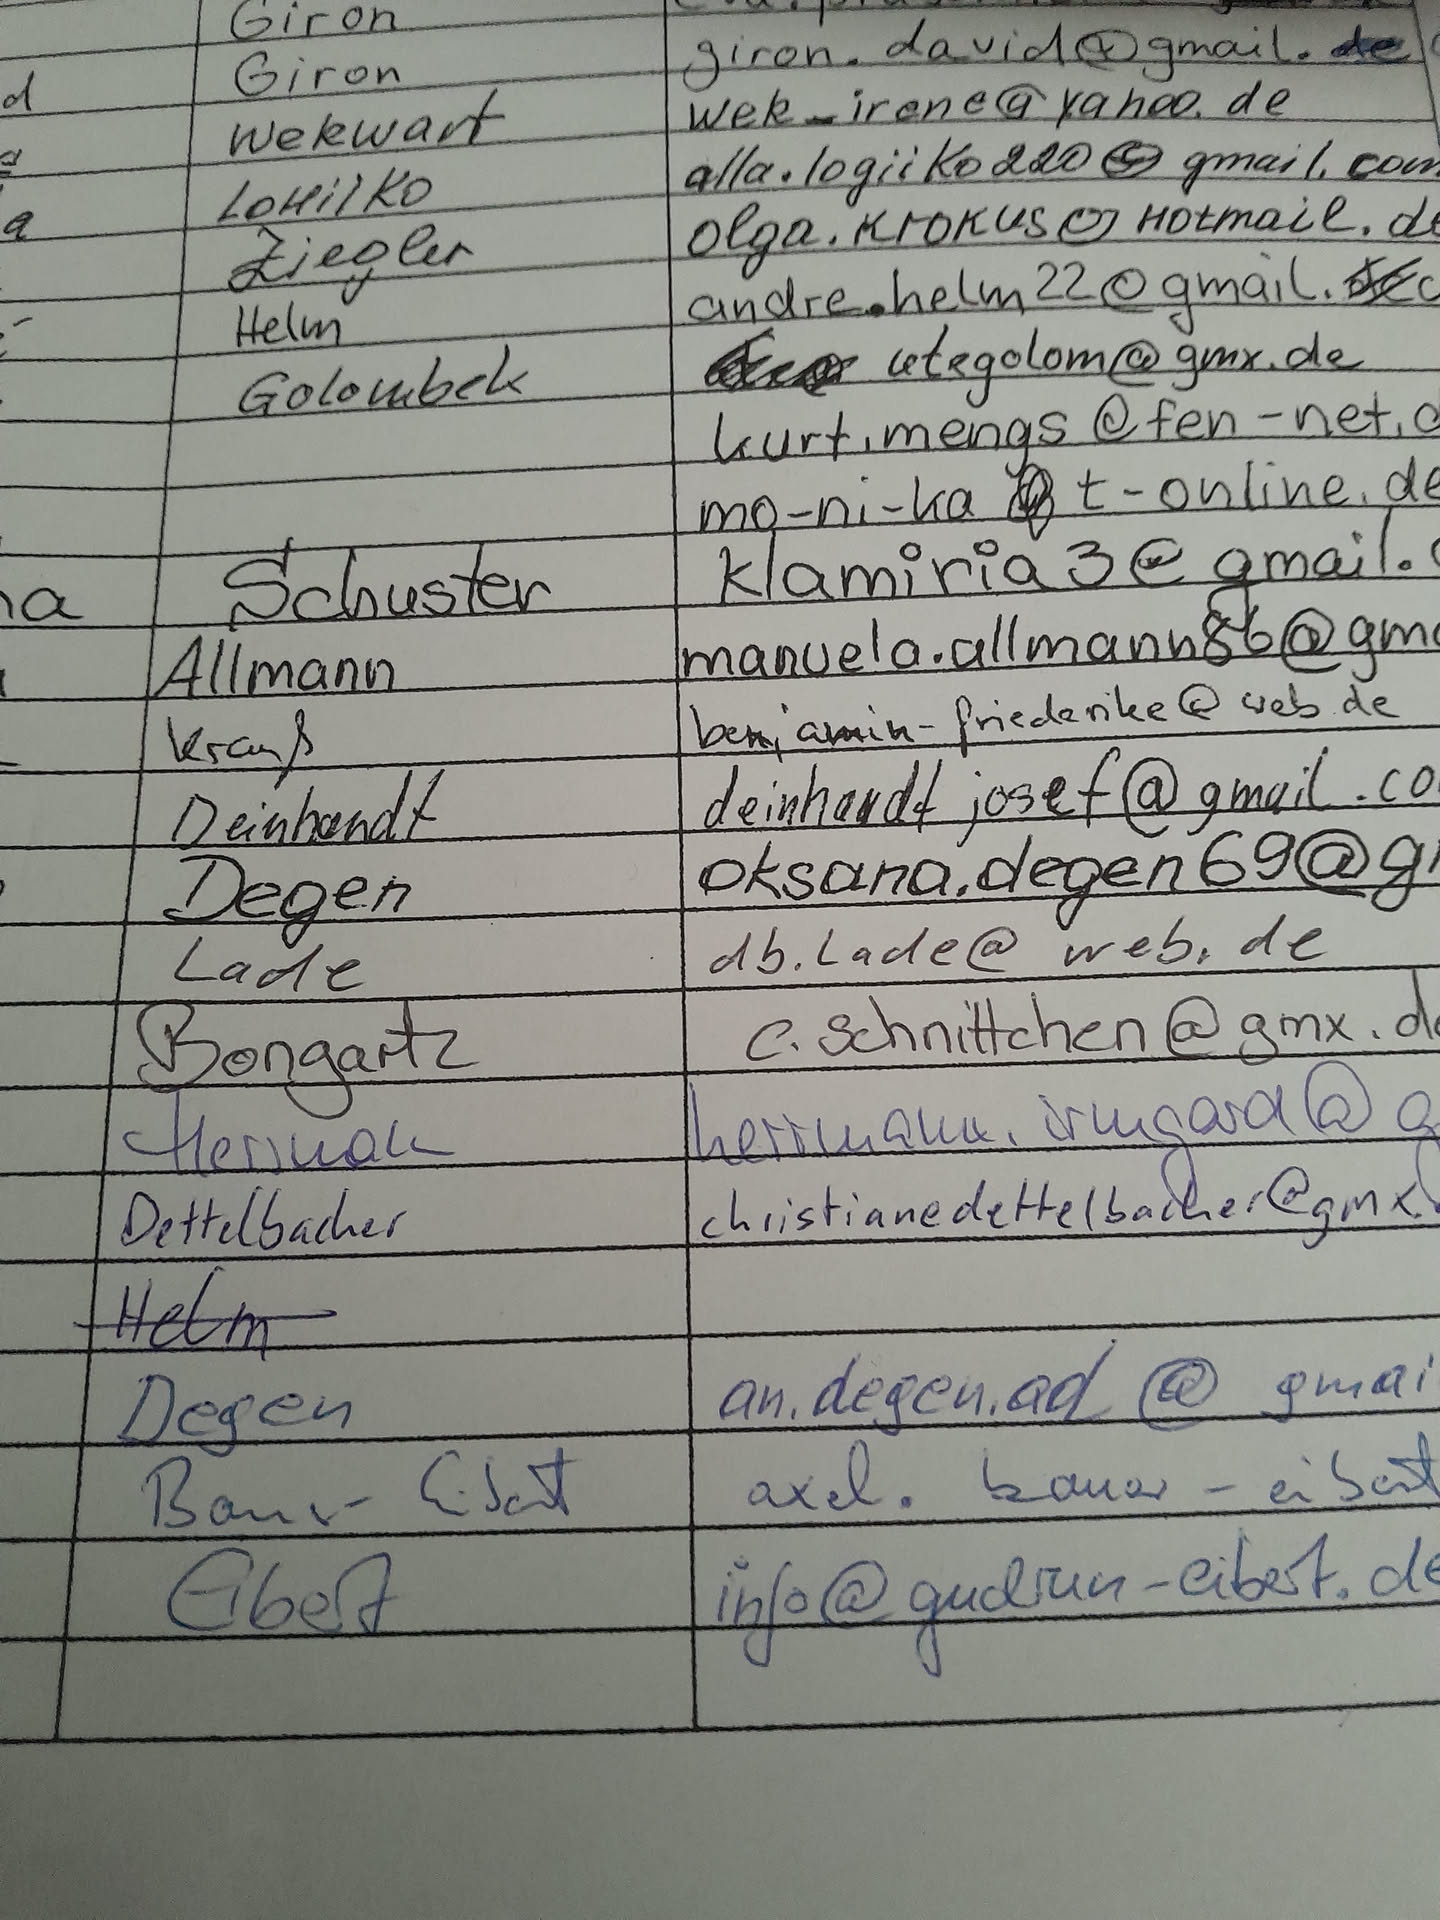 Giron
d Giron giron.david@gmail.
Wekwart wek_irene@yahoo.de
LOHILKO alla.logiiko220@gmail.com
a Ziegler olga.KROKUS@HOtmail.de
Helm andre.helm22@gmail.
Golombek utegolom@gmx.de
kurt.mengs@fen-net.d
mo-ni-ka@t-online.de
na Schuster klamiria3@gmail.
Allmann manuela.allmann86@gma
Krauß benjamin-friederike@web.de
Deinhardt deinhardt josef@gmail.co
Degen oksana.degen69@g
Lade db.Lade@web.de
Bongartz c.schnittchen@gmx.de
Herrman herrmann.irmgard@g
Dettelbacher christianedettelbacher@gmx.
Helm
Degen an.degen.ad@gmai
Bauer-Eibert axel.bauer-eibert
Eibert info@gudrun-eibert.de